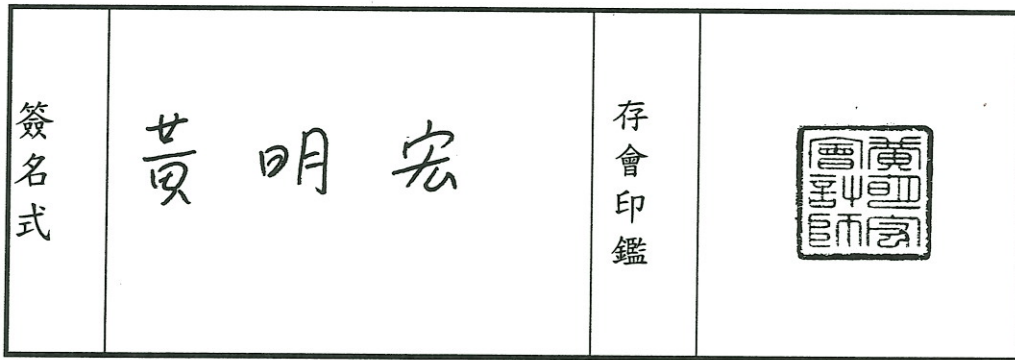 簽名式
黃明宏
存會印鑑
黃明宏
會計師